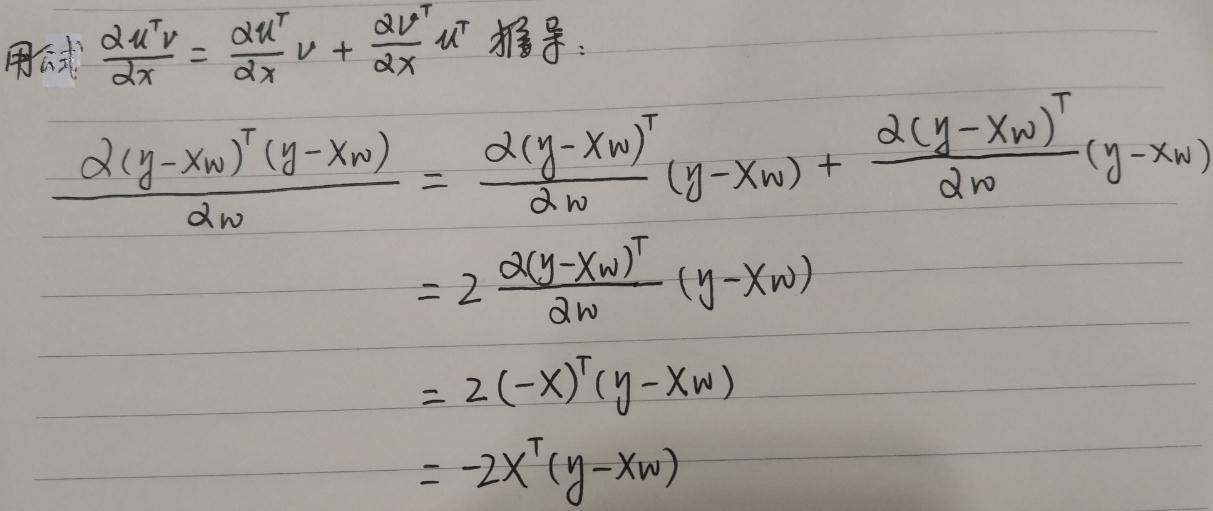 用公式 ∂uᵀv/∂x = ∂uᵀ/∂x v + ∂vᵀ/∂x uᵀ 推导:
∂(y-Xw)ᵀ(y-Xw)/∂w = ∂(y-Xw)ᵀ/∂w (y-Xw) + ∂(y-Xw)ᵀ/∂w (y-Xw)
= 2 ∂(y-Xw)ᵀ/∂w (y-Xw)
= 2(-X)ᵀ(y-Xw)
= -2Xᵀ(y-Xw)